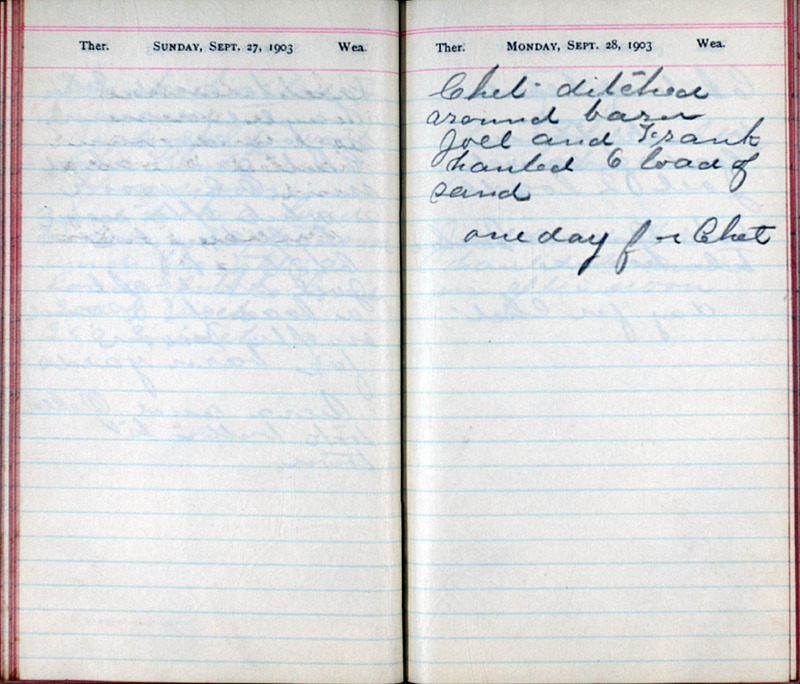 Ther. SUNDAY, SEPT. 27, 1903 Wea.
Ther. MONDAY, SEPT. 28, 1903 Wea.
Chet ditched
around barn
Joel and Frank
hauled 6 load of
sand
one day for Chet